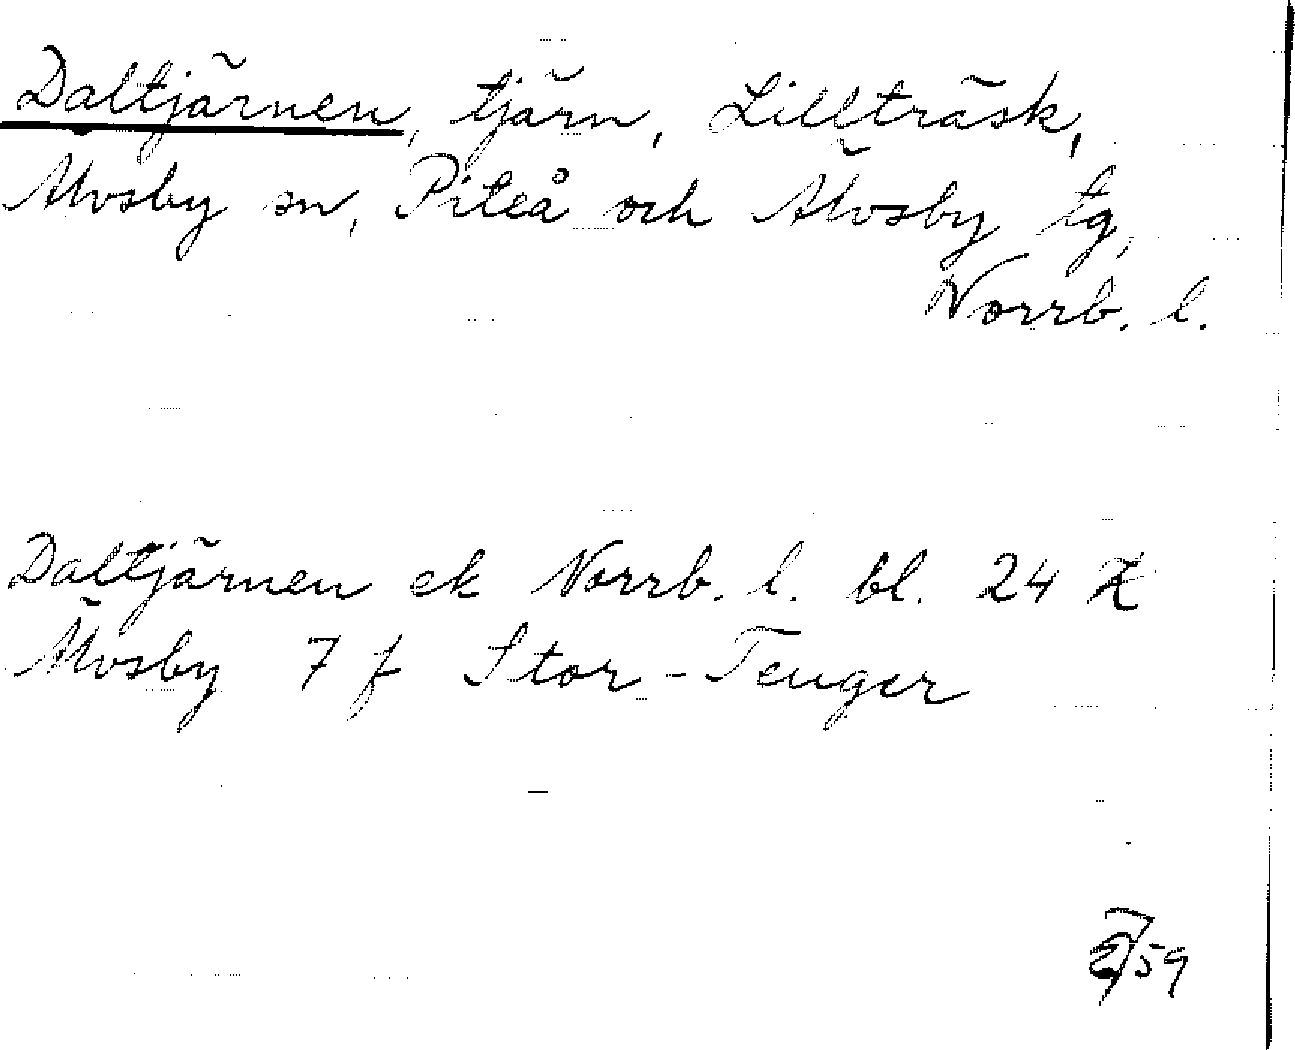 Daltjärnen, tjärn, Lillträsk,
Älvsby sn, Piteå och Älvsby tg,
Norrb. l.
Daltjärnen ek Norrb. l. bl. 24
Älvsby 7 f Stor-Teuger
59